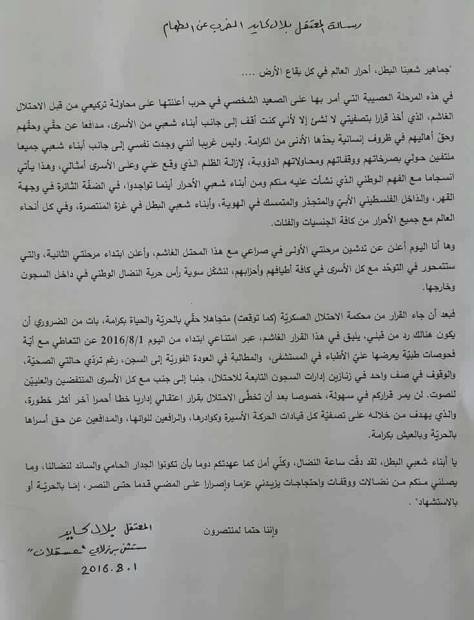 رسالة المعتقل بلال كايد المضرب عن الطعام
"جماهير شعبنا البطل، أحرار العالم في كل بقاع الأرض ....
في هذه المرحلة العصيبة التي أمر بها على الصعيد الشخصي في حرب أعلنتها على محاولة تركيعي من قبل الاحتلال
الغاشم، الذي أخذ قرارا بتصفيتي لا لشئ إلا لأني كنت أقف إلى جانب أبناء شعبي من الأسرى، مدافعا عن حقّي وحقّهم
وحقّ أهاليهم في ظروف إنسانية بحدّها الأدنى من الكرامة. وليس غريبا أنني وجدت نفسي إلى جانب أبناء شعبي جميعا
ملتفين حولي بصرخاتهم ووقفاتهم ومحاولاتهم الدؤوبة، لإزالة الظلم الذي وقع عليّ وعلى الأسرى أمثالي، وهذا يأتي
انسجاما مع الفهم الوطني الذي نشأت عليه منكم ومن أبناء شعبي الأحرار أينما تواجدوا، في الضفّة الثائرة في وجهة
القهر، والدّاخل الفلسطيني الأبيّ والمتجذر والمتمسك في الهوية، وأبناء شعبي البطل في غزة المنتصرة، وفي كل أنحاء
العالم مع جميع الأحرار من كافة الجنسيات والفئات.
وها أنا اليوم أعلن عن تدشين مرحلتي الأولى في صراعي مع هذا المحتل الغاشم، وأعلن ابتداء مرحلتي الثانية، والتي
ستتمحور في التوحّد مع كل الأسرى في كافة أطيافهم وأحزابهم، لنشكّل سوية رأس حربة النضال الوطني في داخل السجون
وخارجها.
فبعد أن جاء القرار من محكمة الاحتلال العسكريّة (كما توقعت) متجاهلا حقّي بالحريّة والحياة بكرامة، بات من الضروري أن
يكون هنالك رد من قبلي، يليق في هذا القرار الغاشم، عبر امتناعي ابتداء من اليوم 2016/8/1 عن التعاطي مع أيّة
فحوصات طبيّة يعرضها عليّ الأطباء في المستشفى، والمطالبة في العودة الفوريّة إلى السجن، رغم تردّي حالتي الصحيّة،
والوقوف في صف واحد في زنازين إدارات السجون التابعة للاحتلال، جنبا إلى جنب مع كل الأسرى المنتفضين والمغليّين
للصوت. لن يمر قراركم في سهولة، خصوصا بعد أن تخطّى الاحتلال بقرار اعتقالي إداريا خطا أحمرا آخر أكثر خطورة،
والذي يهدف من خلاله على تصفيّة كل قيادات الحركة الأسيرة وكوادرها، والرافعين للوائها، والمدافعين عن حق أسراها
بالحريّة وبالعيش بكرامة.
يا أبناء شعبي البطل، لقد دقّت ساعة النضال، وكلّي أمل كما عهدتكم دوما بأن تكونوا الجدار الحامي والساند لنضالنا، وما
يصلني منكم من نضالات ووقفات واحتجاجات يزيدني عزما وإصرارا على المضي قدما حتى النصر، إمّا بالحريّة أو
بالاستشهاد".
وإننا حتما لمنتصرون
المعتقل بلال كايد
مستشفى برزلاي "عسقلان"
2016.8.1